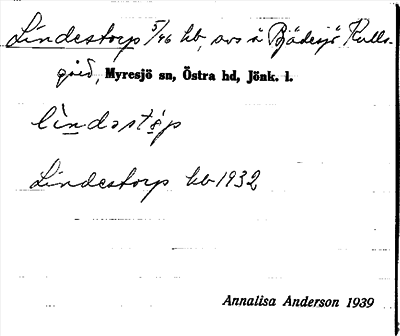 Lindestorp 5/96 hb, avs å Bjädesjö Kulla-
gård, Myresjö sn, Östra hd, Jönk. l.
lìndəstǫ̀p
Lindestorp kb 1932
Annalisa Anderson 1939